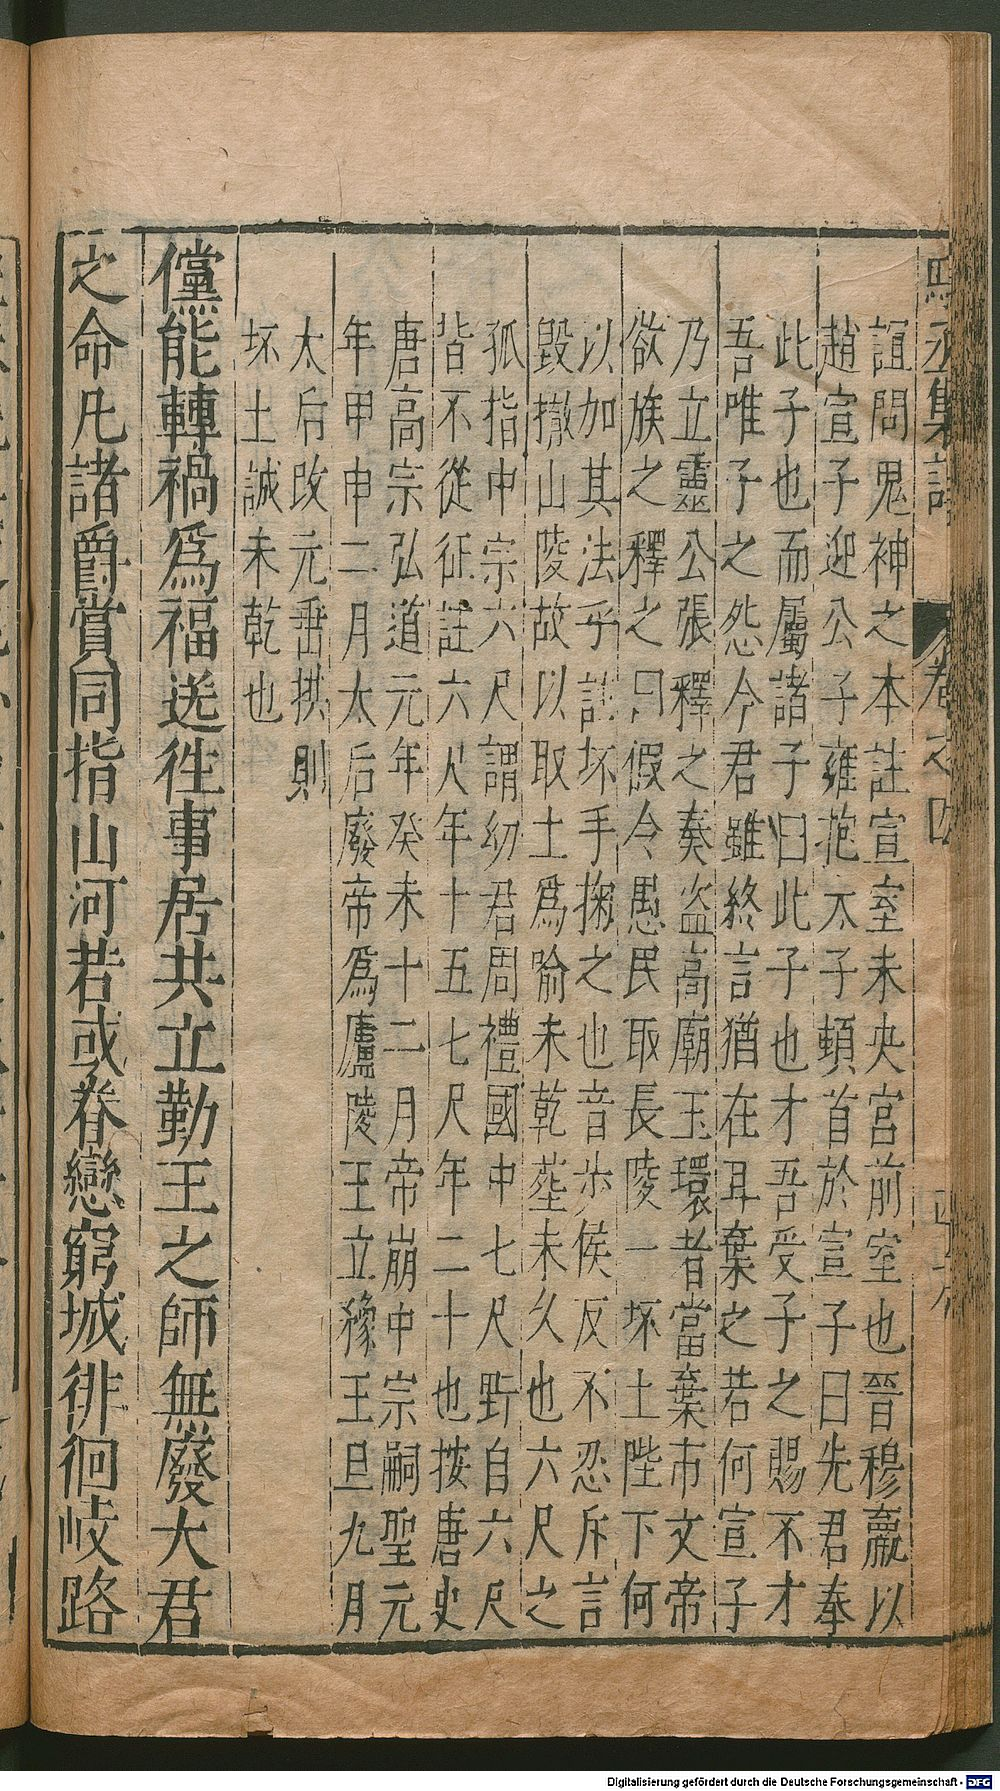 誼問鬼神之本註宣室未央宮前室也晉穆嬴以
趙宣子迎公子雍抱太子頓首於宣子曰先君奉
此子也而屬諸子曰此子也才吾受子之賜不才
吾唯子之怨今君雖終言猶在耳棄之若何宣子
乃立靈公張釋之奏盜高廟玉環者當棄市文帝
欲族之釋之曰假令愚民取長陵一坏土陛下何
以加其法乎註坏手掬之也音步侯反不忍斥言
毀撤山陵故以取土為喻未乾塟未久也六尺之
孤指中宗六尺謂幼君周禮國中七尺野自六尺
皆不從征註六尺年十五七尺年二十也按唐史
唐高宗弘道元年癸未十二月帝崩中宗嗣聖元
年甲申二月太后廢帝為廬陵王立豫王旦九月
太后改元垂拱則
坏土誠未乾也
儻能轉禍為福送徃事居共立勤王之師無廢大君
之命凡諸爵賞同指山河若或眷戀窮城徘徊岐路
Digitalisierung gefördert durch die Deutsche Forschungsgemeinschaft - DFG